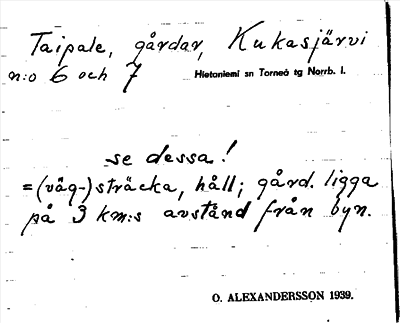 Taipale, gårdar, Kukasjärvi
n:o 6 och 7 Hietaniemi sn Torneå tg Norrb. l.
se dessa!
=(väg-)sträcka, håll; gård. ligga
på 3 km:s avstånd från byn.
O. ALEXANDERSSON 1939.